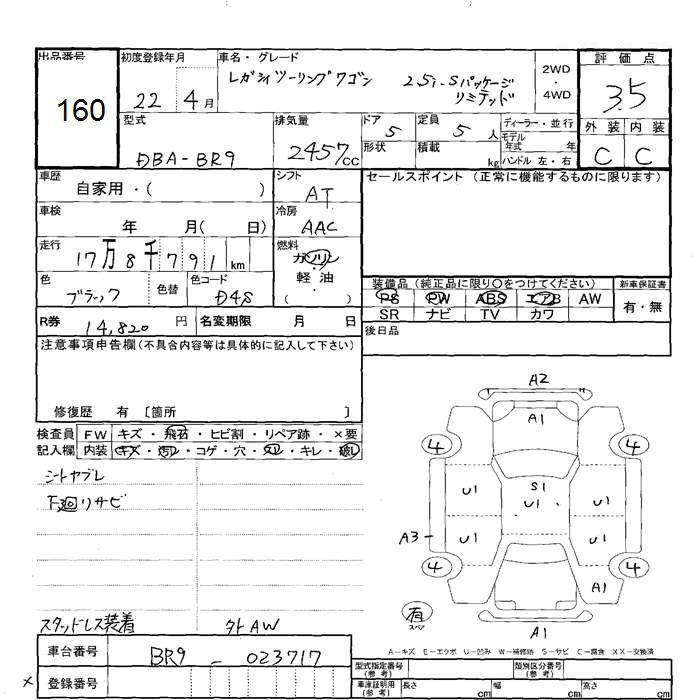 出品番号
160
初度登録年月
22 4月
車名・グレード
レガシィツーリングワゴン 2.5i-Sパッケージ
リミテッド
2WD
・
4WD
評価点
3.5
外装 内装
C C
型式
DBA-BR9
排気量
2457cc
ドア 5
形状
定員 5人
積載 kg
ディーラー・並行
モデル
年式 年
ハンドル 左・右
車歴
自家用・( )
シフト
AT
セールスポイント (正常に機能するものに限ります)
車検
年 月( 日)
冷房
AAC
走行
17万8千791km
燃料
ガソリン
・
軽油
・
( )
色
ブラック
色替
色コード
D4S
装備品 (純正品に限り○をつけてください) 新車保証書
PS PW ABS エアB AW 有・無
SR ナビ TV カワ
R券 14,820円
名変期限 月 日
後日品
注意事項申告欄(不具合内容等は具体的に記入して下さい)
修復歴 有 〔箇所 〕
検査員 FW キズ・飛石・ヒビ割・リペア跡・×要
記入欄 内装 キズ・汚レ・コゲ・穴・スレ・キレ・破レ
シートヤブレ
下廻リサビ
スタッドレス装着 タトAW
A2
A1
4 4
U1 S1 U1
U1
A3 U1 U1
4 4
A1
有
スペア
A1
A-キズ E-エクボ U-凹み W-補修跡 S-サビ C-腐食 XX-交換済
車台番号
BR9-023717
× 登録番号
型式指定番号
(参考)
類別区分番号
(参考)
車庫証明用
(参考)
長さ cm 幅 cm 高さ cm